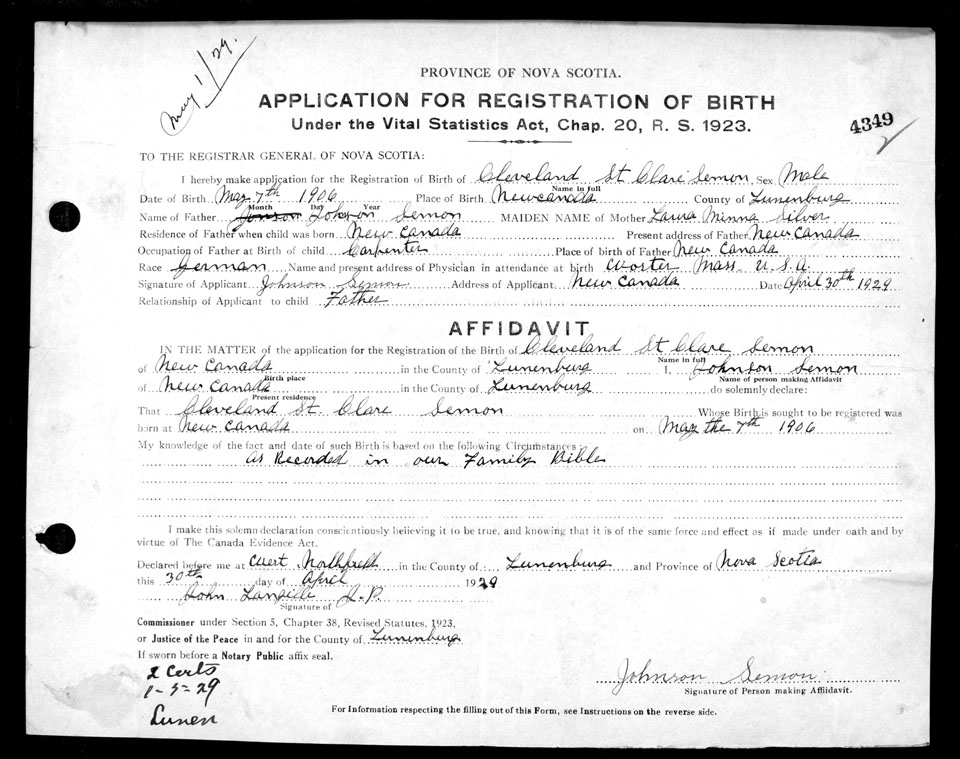 May 1/29.
PROVINCE OF NOVA SCOTIA.
APPLICATION FOR REGISTRATION OF BIRTH
Under the Vital Statistics Act, Chap. 20, R. S. 1923.
4349
TO THE REGISTRAR GENERAL OF NOVA SCOTIA:
I hereby make application for the Registration of Birth of Cleveland St Clare Semon Sex Male
Name in full
Date of Birth May 7th 1906 Place of Birth New canada County of Lunenburg
Month Day Year
Name of Father Johnson Semon MAIDEN NAME of Mother Laura Minna Silver
Residence of Father when child was born New Canada Present address of Father New Canada
Occupation of Father at Birth of child Carpenter Place of birth of Father New Canada
Race German Name and present address of Physician in attendance at birth Woster Mass U.S.A.
Signature of Applicant Johnson Semon Address of Applicant New Canada Date April 30th 1929
Relationship of Applicant to child Father
AFFIDAVIT
IN THE MATTER of the application for the Registration of the Birth of Cleveland St Clare Semon
Name in full
of New Canada in the County of Lunenburg I, Johnson Semon
Birth place Name of person making Affidavit
of New Canada in the County of Lunenburg do solemnly declare:
Present residence
That Cleveland St Clare Semon Whose Birth is sought to be registered was
born at New Canada on May the 7th 1906
My knowledge of the fact and date of such Birth is based on the following Circumstances:
as Recorded in our Family Bible
I make this solemn declaration conscientiously believing it to be true, and knowing that it is of the same force and effect as if made under oath and by
virtue of The Canada Evidence Act.
Declared before me at West Northfield in the County of Lunenburg and Province of Nova Scotia
this 30th day of April 1929
John Langille J.P.
Signature of
Commissioner under Section 5, Chapter 38, Revised Statutes, 1923,
or Justice of the Peace in and for the County of Lunenburg
If sworn before a Notary Public affix seal.
2 Certs
1-5-29
Lunen
Johnson Semon
Signature of Person making Affidavit.
For Information respecting the filling out of this Form, see Instructions on the reverse side.